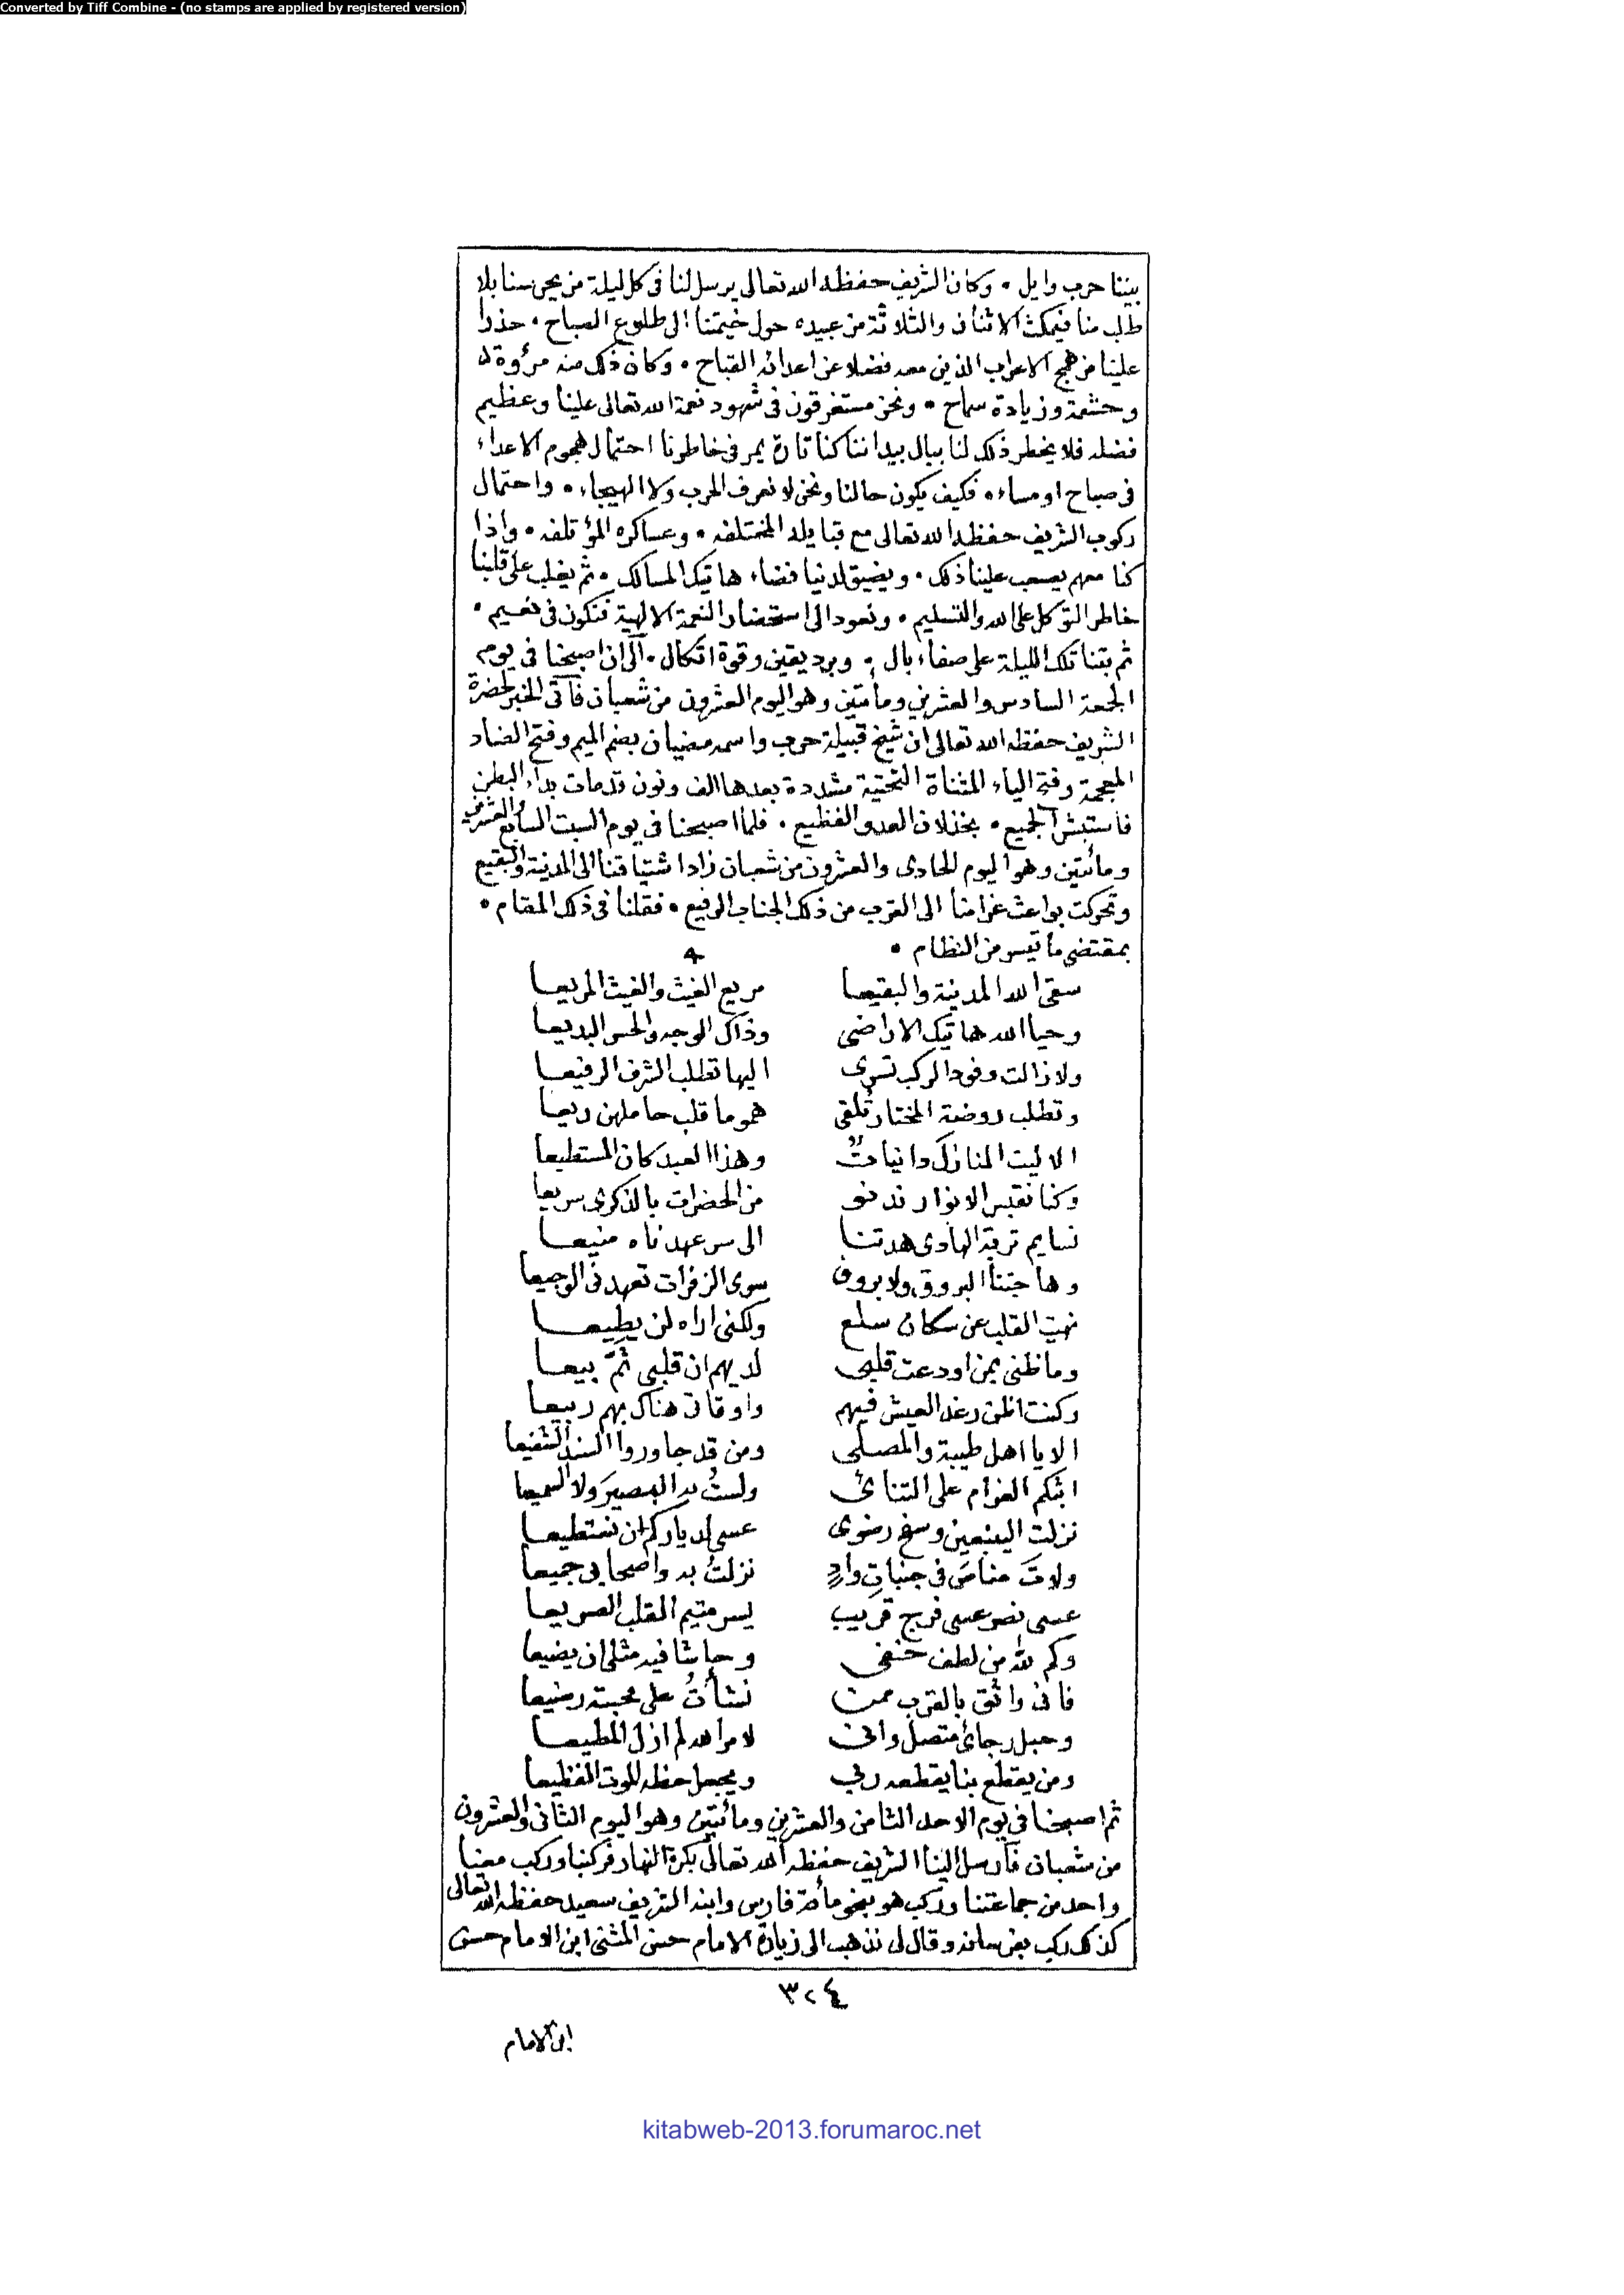 Converted by Tiff Combine - (no stamps are applied by registered version)
بيننا حرب وايل ۰ وكان الشريف حفظه الله تعالى يرسل لنا فى كل ليلة من يحرسنا بلا
طلب منا فيمكث الاثنان والثلاثة من عبيده حول خيمتنا الى طلوع الصباح ۰ حذرا
علينا من همج الاعراب الذين معه فضلا عن اعدائه القباح ۰ وكان ذلك منه مرؤة له
وحشمة وزيادة سماح ۰ ونحن مستغرقون فى شهود نعمة الله تعالى علينا وعظيم
فضله فلا يخطر ذلك لنا ببال بيد اننا كنا تارة يمر فى خاطرنا احتمال هجوم الاعداء
فى صباح او مساء ۰ فكيف يكون حالنا ونحن لا نعرف الحرب ولا الهيجاء ۰ واحتمال
ركوب الشريف حفظه الله تعالى مع قبايله المختلفه ۰ وعساكره المؤتلفه ۰ واذا
كنا معهم يصعب علينا ذلك ۰ ويضيق لدنيا فضاء هاتيك المسالك ۰ ثم يغلب على قلبنا
خاطر التوكل على الله والتسليم ۰ ونعود الى استحضار النعمة الالهية فنكون فى نعيم ۰
ثم بتنا تلك الليلة على صفاء بال ۰ وبرد يقين وقوة اتكال ۰ الى ان اصبحنا فى يوم
الجمعة السادس والعشرين ومأتين وهو اليوم العشرون من شعبان فأتى الخبر لحضرة
الشريف حفظه الله تعالى ان شيخ قبيلة حرب واسمه مضيان بضم الميم وفتح الضاد
المعجمة وفتح الياء المثناة التحتية مشددة بعدها الف ونون قد مات بداء البطن
فاستبشر الجميع ۰ بخذلان العدو الفظيع ۰ فلما اصبحنا فى يوم السبت السابع والعشرين
ومائتين وهو اليوم الحادى والعشرون من شعبان زاد اشتياقنا الى المدينة والبقيع
وتحركت بواعث غرامنا الى القرب من ذلك الجناب الرفيع ۰ فقلنا فى ذلك المقام ۰
بمقتضى ما تيسر من النظام ۰
سقى الله المدينة والبقيعا مريع الغيث والغيث المريعا
وحيا الله هاتيك الاراضى وذاك الوجه والحسن البديعا
ولا زالت وفود الركب تسرى اليها تطلب الشرف الرفيعا
وتطلب روضة المختار تلقى هموما قلب حاملهن ريعا
الا ليت المنازل دانيات وهذا العبد كان المستطيعا
وكنا نقبس الانوار ندنو من الحضرات بالذكرى سريعا
نسايم تربة الهادى هدتنا الى سر عهدناه منيعا
وهاجتنا البروق ولا بروق سوى الزفرات تعهد فى الوجيعا
نهيت القلب عن سكان سلع ولكنى اراه لن يطيعا
وما ظنى بمن اودعت قلبى لديهم ان قلبى ثم بيعا
وكنت اظن رغد العيش فيهم واوقاتى هناك بهم ربيعا
الا يا اهل طيبة والمصلى ومن قد جاوروا السند الشفيعا
ابثكم الغرام على التنائى ولست به البصير ولا السميعا
نزلت الينبعين وسفح رضوى عسى لدياركم ان نستطيعا
ولات مناص فى جنبات واد نزلت به واصحابى جميعا
عسى نصر عسى فرج قريب يسر متيم القلب الصريعا
وكم لله من لطف خفى وحاشا فيه مثلى ان يضيعا
فانى واثق بالقرب ممن نشأت على محبته رضيعا
وحبل رجائى متصل وانى لامر الله لم ازل المطيعا
ومن يقطع بنا يقطعه ربى ويجعل حظه الموت الفظيعا
ثم اصبحنا فى يوم الاحد الثامن والعشرين ومائتين وهو اليوم الثانى والعشرون
من شعبان فأرسل الينا الشريف حفظه الله تعالى بكرة النهار فركبنا وركب معنا
واحد من جماعتنا وركب هو بنحو مأة فارس وابنه الشريف سعيد حفظه الله تعالى
كذلك ركب بفرسانه وقال لى نذهب الى زيارة الامام حسن المثنى ابن الامام حسن
٣٢٤
ابن الامام
kitabweb-2013.forumaroc.net